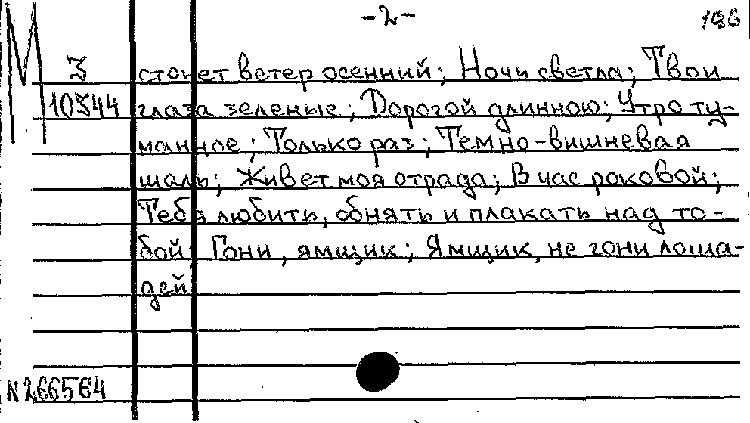 -2-
М
З
10344
стонет ветер осенний; Ночи светла; Твои
глаза зеленые; Дорогой длинною; Утро ту-
манное; Только раз; Темно-вишневая
шаль; Живет моя отрада; В час роковой;
Тебя любить, обнять и плакать над то-
бой; Гони, ямщик; Ямщик, не гони лоша-
дей
N 266564